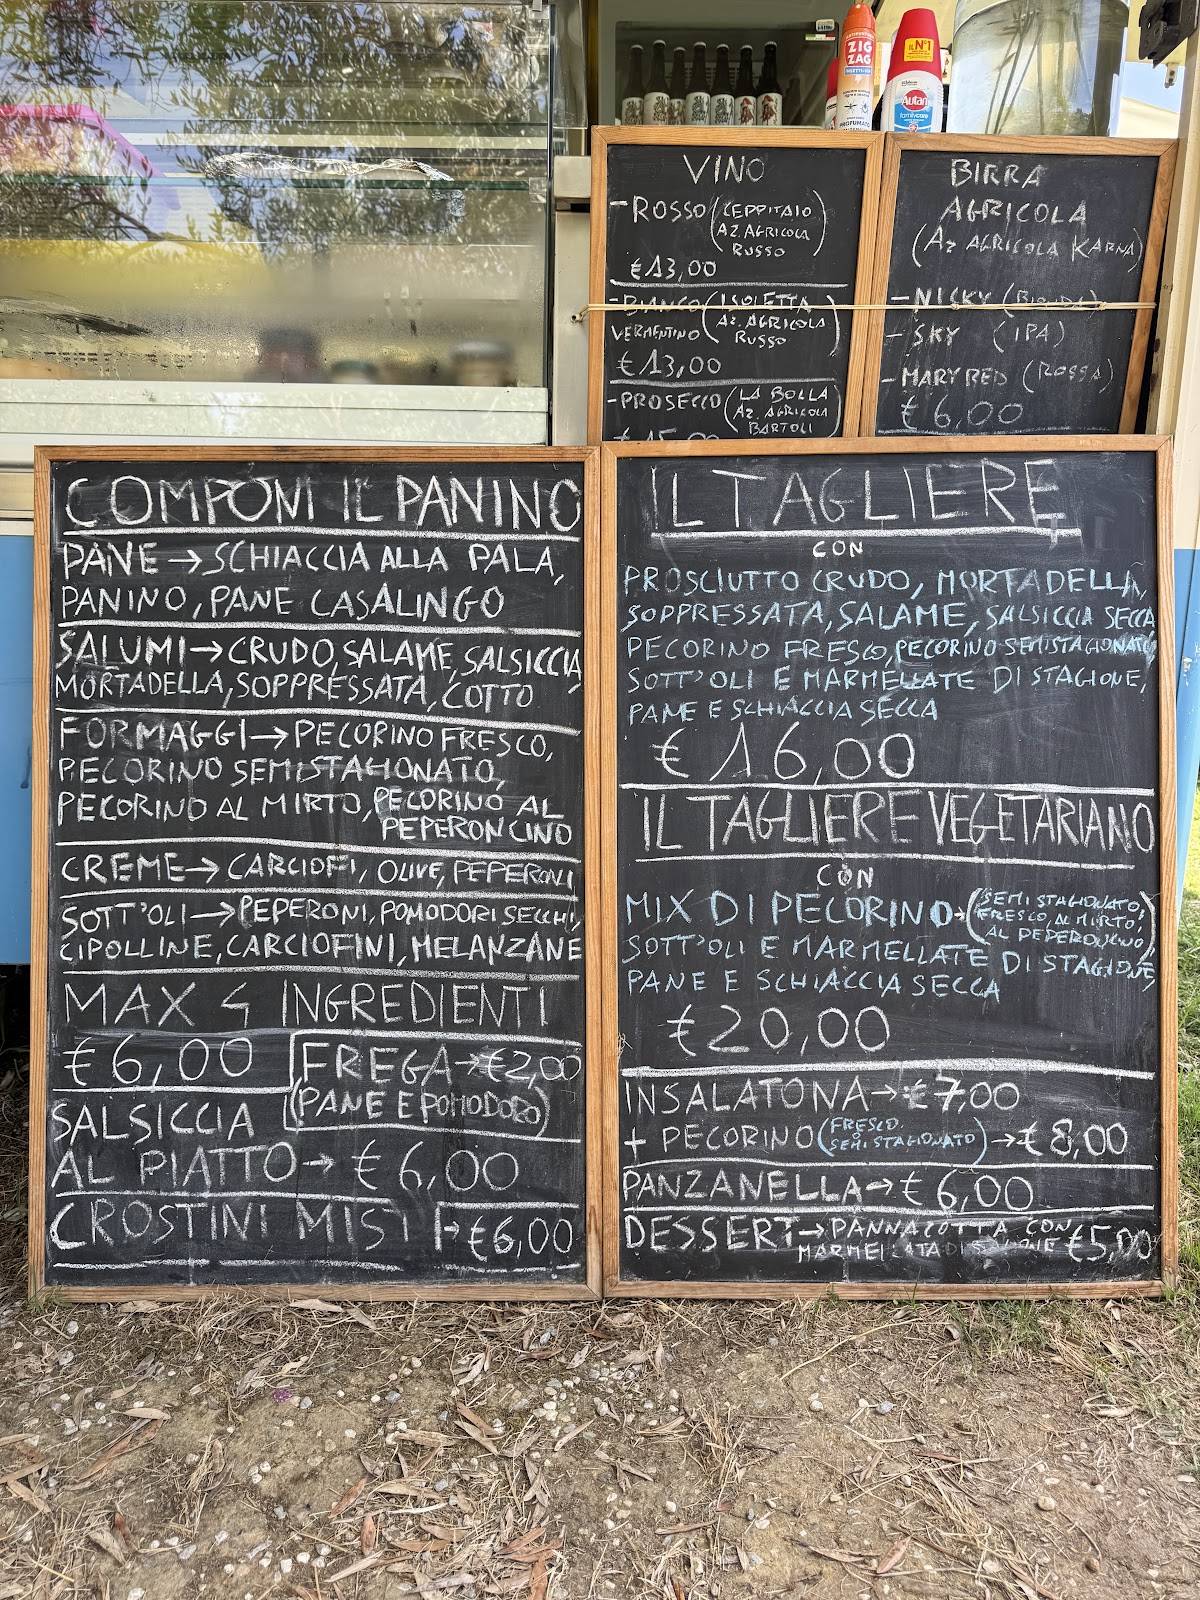 ZIG
ZAG
PROFUMATO
IL N°1
Autan
familycare
VINO
- ROSSO (CEPPITAIO
AZ. AGRICOLA
RUSSO)
€ 13,00
- BIANCO (ISOLETTA
VERMENTINO AZ. AGRICOLA
RUSSO)
€ 13,00
- PROSECCO (LA BOLLA
AZ. AGRICOLA
BARTOLI)
€ 15,00
BIRRA
AGRICOLA
(AZ AGRICOLA KARMA)
- NICKY (BIONDA)
- SKY (IPA)
- MARY RED (ROSSA)
€ 6,00
COMPONI IL PANINO
PANE → SCHIACCIA ALLA PALA,
PANINO, PANE CASALINGO
SALUMI → CRUDO, SALAME, SALSICCIA,
MORTADELLA, SOPPRESSATA, COTTO
FORMAGGI → PECORINO FRESCO,
PECORINO SEMISTAGIONATO,
PECORINO AL MIRTO, PECORINO AL
PEPERONCINO
CREME → CARCIOFI, OLIVE, PEPERONI
SOTT'OLI → PEPERONI, POMODORI SECCHI,
CIPOLLINE, CARCIOFINI, MELANZANE
MAX 4 INGREDIENTI
€ 6,00 FREGA → €2,00
(PANE E POMODORO)
SALSICCIA
AL PIATTO → € 6,00
CROSTINI MISTI → €6,00
IL TAGLIERE
CON
PROSCIUTTO CRUDO, MORTADELLA,
SOPPRESSATA, SALAME, SALSICCIA SECCA
PECORINO FRESCO, PECORINO SEMISTAGIONATO
SOTT'OLI E MARMELLATE DI STAGIONE,
PANE E SCHIACCIA SECCA
€ 16,00
IL TAGLIERE VEGETARIANO
CON
MIX DI PECORINO → (SEMISTAGIONATO,
FRESCO, AL MIRTO,
AL PEPERONCINO),
SOTT'OLI E MARMELLATE DI STAGIONE,
PANE E SCHIACCIA SECCA
€ 20,00
INSALATONA → € 7,00
+ PECORINO (FRESCO O
SEMISTAGIONATO) → € 8,00
PANZANELLA → € 6,00
DESSERT → PANNACOTTA CON
MARMELLATA DI STAGIONE €5,00